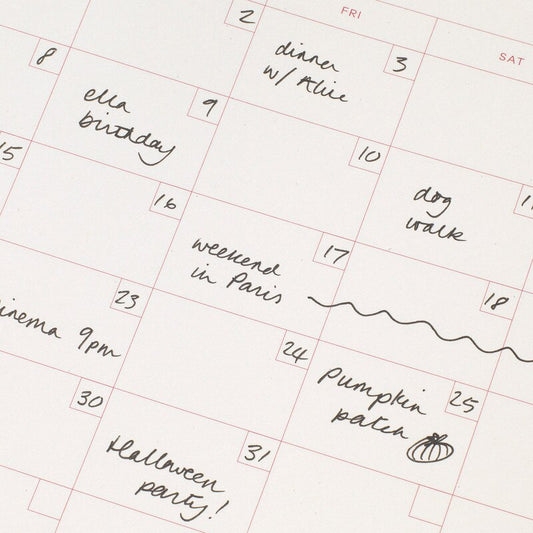 FRI
SAT
2
dinner
w/ Alice
3
8
ella
birthday
9
10
dog
walk
11
15
16
weekend
in Paris
17
18
23
cinema 9pm
24
pumpkin
patch
25
30
Halloween
party!
31